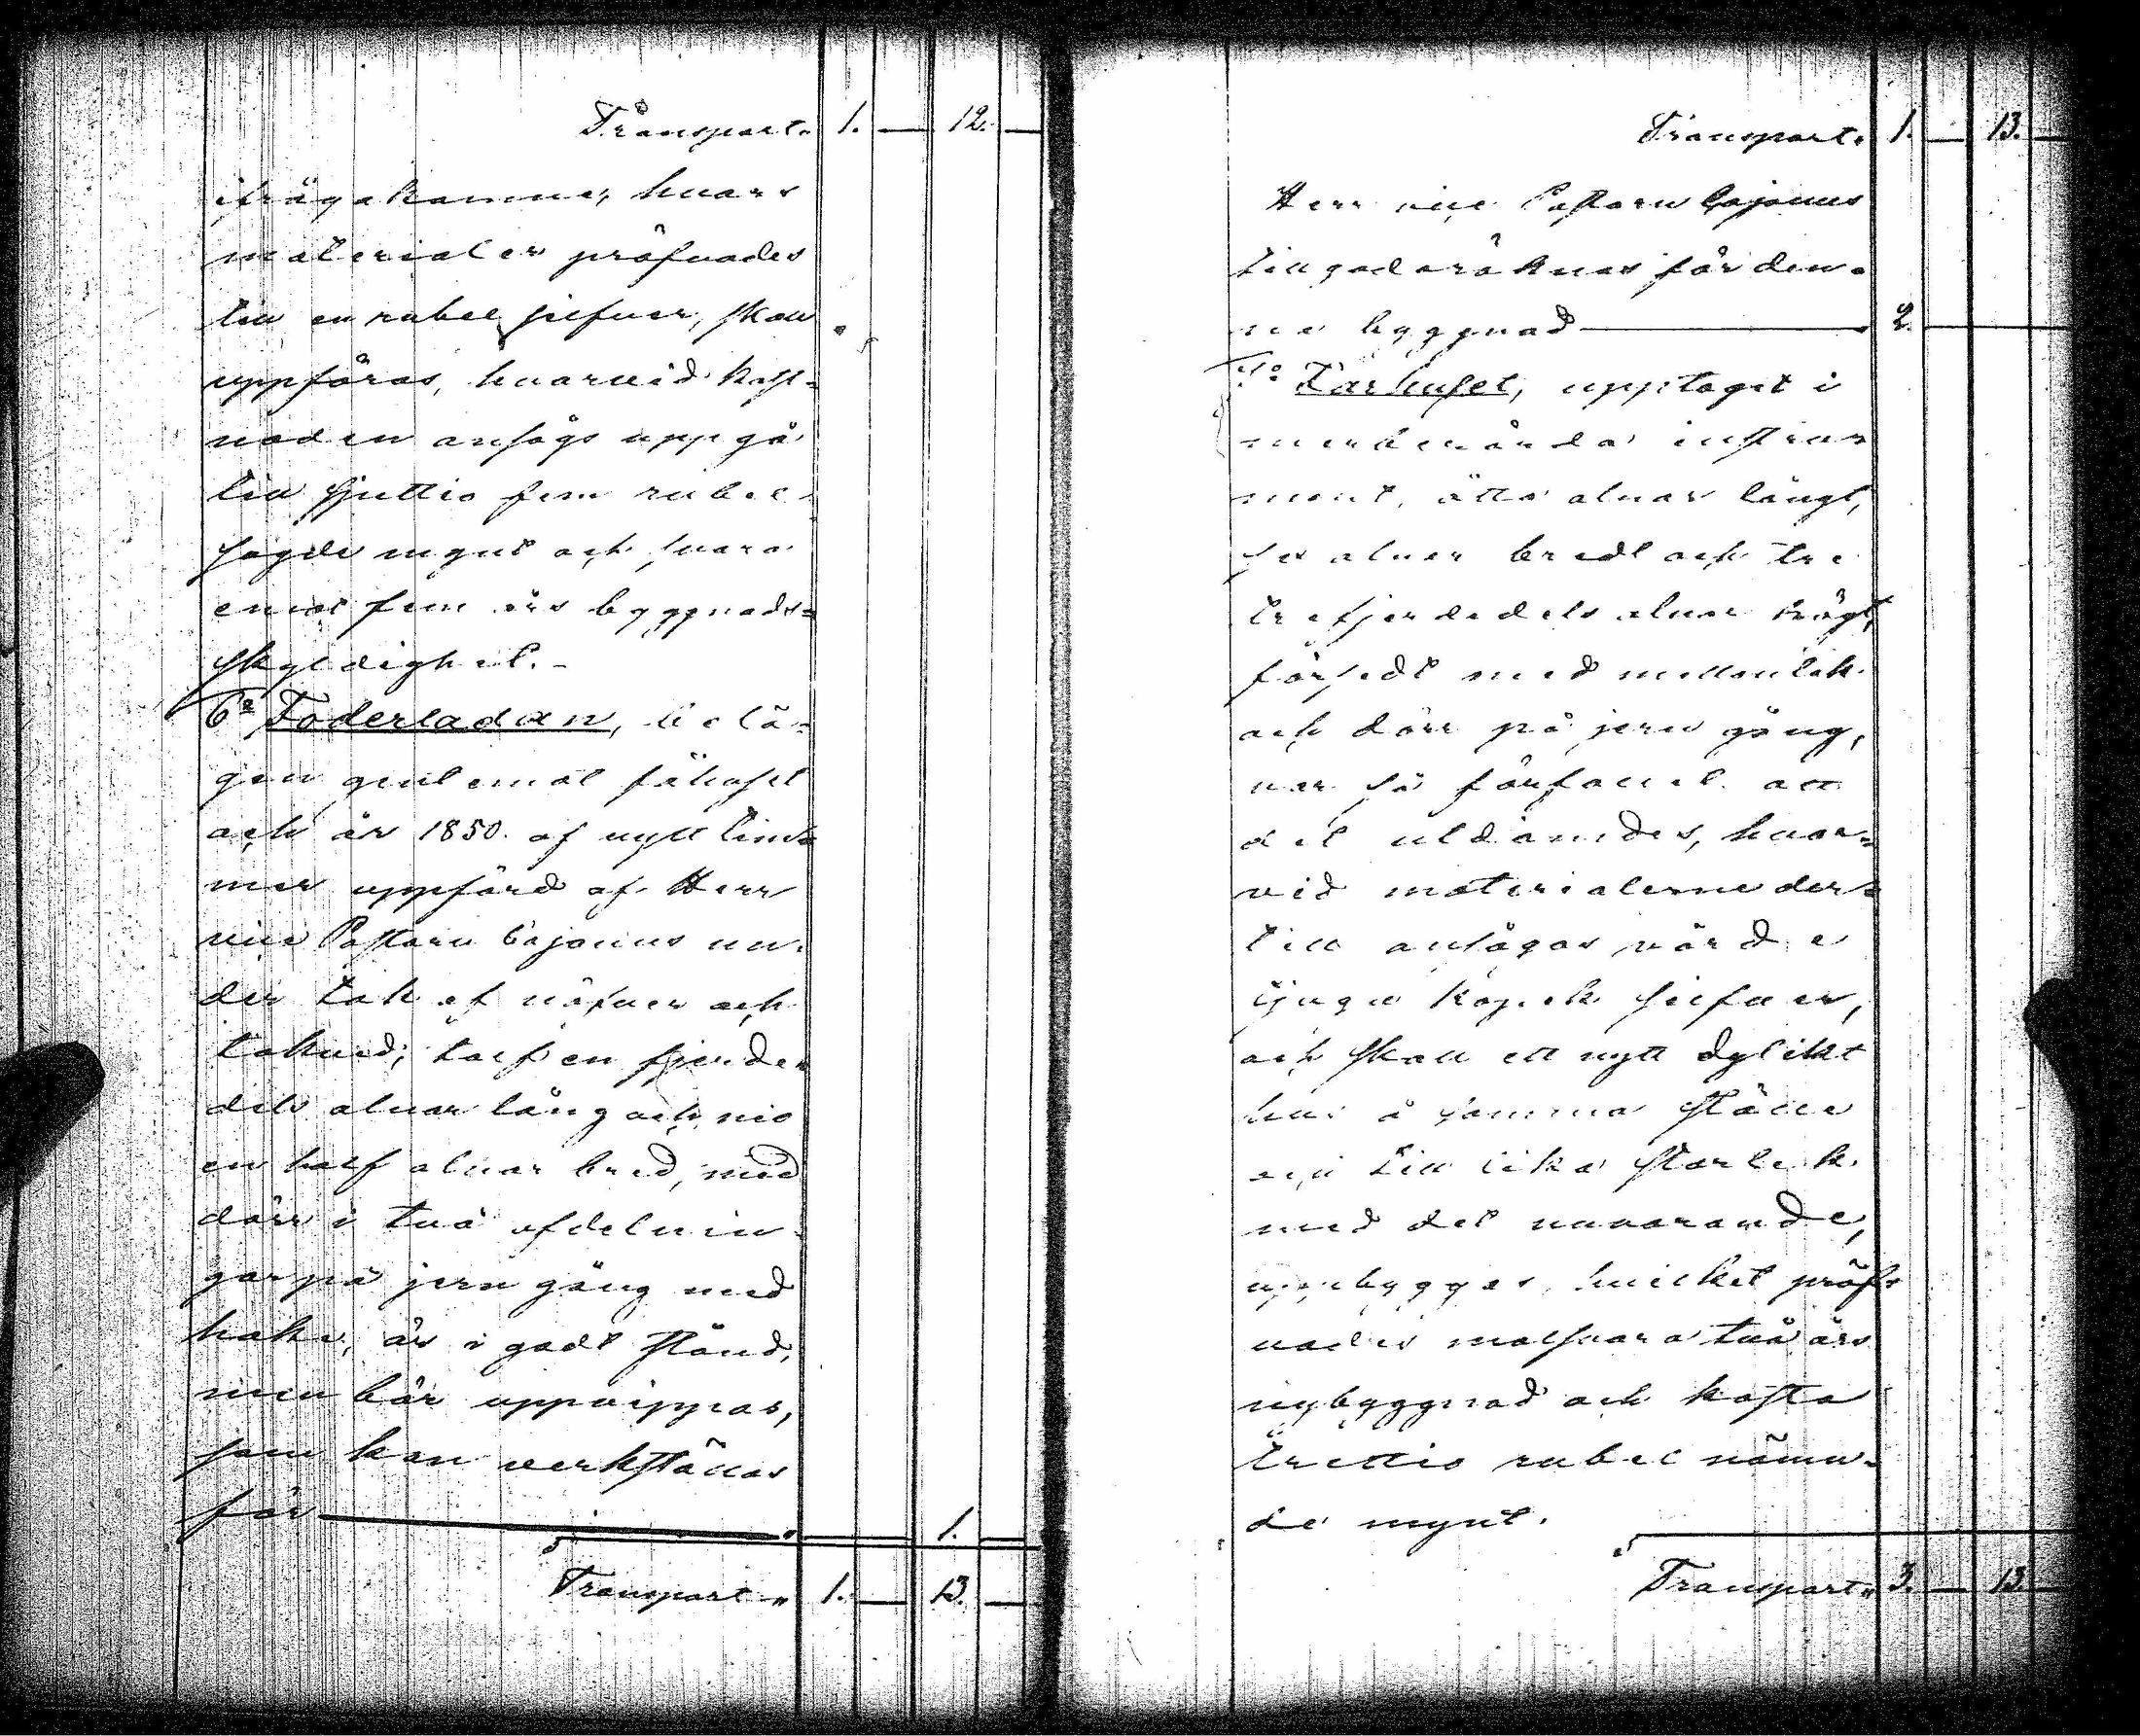 Transport. 1. — 12. —
ifrågakomne, hvars
materialer pröfvades
till en rubel silfver, skall
uppföras, hvarvid kost=
naden ansågs uppgå
till sjuttio fem rubel
sagde mynt och svara
emot fem års byggnads=
skyldighet. –
6º Foderladan, belä=
gen gent emot fähuset
och år 1850. af nytt tim=
mer uppförd af Herr
vice Pastorn Cajanus un=
der tak af näfver och
takved, tolf en fjerde=
dels alnar lång och nio
en half alnar bred, med
dörr i två afdelnin=
gar på jern gång med
hake, är i godt stånd,
men bör uppvippas,
som kan verkställas
för — 1. —
Transport. 1. — 13. —
Transport. 1. — 13. —
Herr vice Pastorn Cajanus
tillgodoräknas för den=
na byggnad — 2. —
7º Farhuset, upptaget i
merbemälda instru=
ment, åtta alnar långt,
sex alnar bredt och tre
trefjerdedels alnar högt,
försedt med mellantak
och dörr på jern gång,
var så förfallet att
det utdömdes, hvar=
vid materialerne der=
till ansågos värde
tjugu kopek silfver,
och skall ett nytt dylikt
hus å samma ställe
och till lika storlek
med det nuvarande,
uppbyggas, hvilket pröf=
vades motsvara två års
nybyggnad och kosta
trettio rubel nämn=
de mynt.
Transport. 3. — 13. —